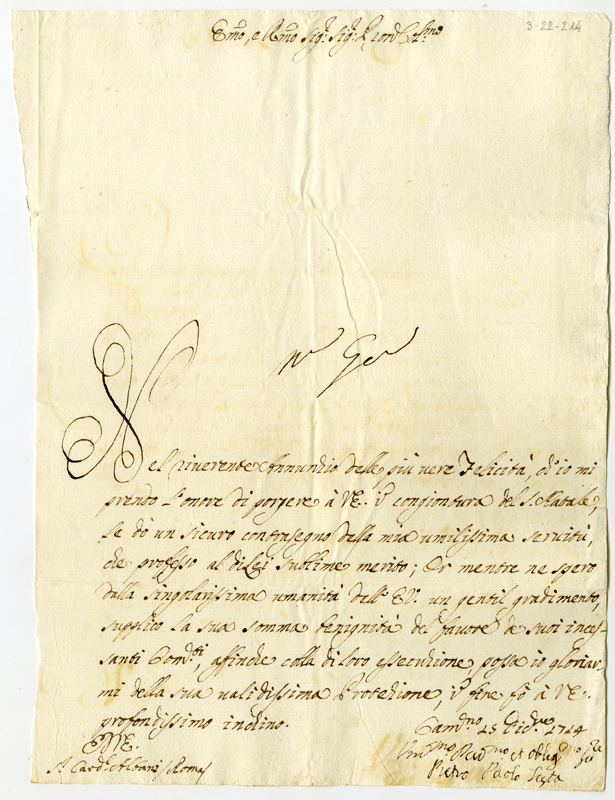 3-22-214
Em̃o, e Rm̃o Sig.r Sig.r Pron Col.mo
Nel riverente Annunzio delle più vere Felicità, ch'io mi
prendo l'onore di porgere à V.E. in congiontura del S. Natale,
le dò un sicuro contrasegno della mia umilissima servitù,
che professo al di Lei sublime merito; Et mentre ne spero
dalla singolarissima umanità dell'E.V. un gentil gradimento,
supplico la sua somma benignità del favore de suoi inces-
santi Com.di, affinche colla di loro essecuzione possa io gloriar-
mi della sua validissima Protezione, in fine fò à V.E.
profondissimo inchino.
Cam.no 25 Dic.re 1724
Um.mo Dev.mo et Oblig.mo
Pietro Paolo Testa
S.r Card.e Albani Roma